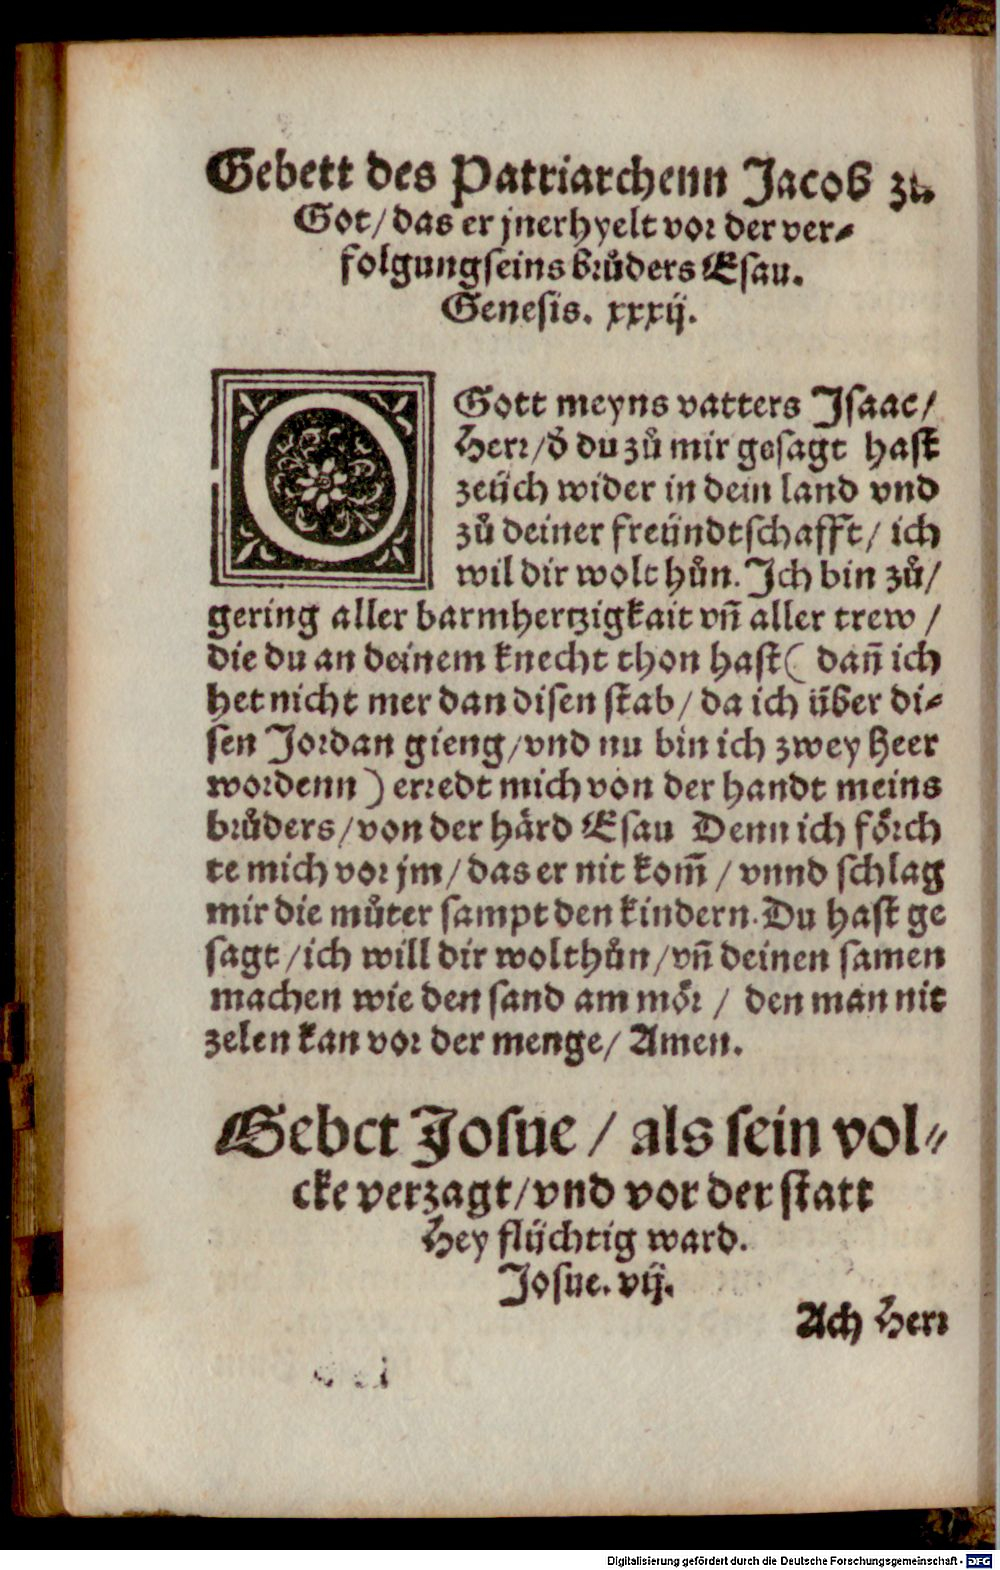 Gebett des Patriarchenn Jacob zů
Got/ das er jnerhyelt vor der ver⸗
folgung seins brůders Esau.
Genesis. xxxij.
O Gott meyns vatters Isaac/
Herr/ď du zů mir gesagt hast
zeüch wider in dein land vnd
zů deiner freündtschafft/ ich
wil dir wolt hůn. Ich bin zů/
gering aller barmhertzigkait vñ aller trew /
die du an deinem knecht thon hast( dañ ich
het nicht mer dan disen stab/ da ich über di⸗
sen Jordan gieng/vnd nu bin ich zwey Heer
wordenn ) erredt mich von der handt meins
brůders/von der härd Esau Denn ich förch
te mich vor jm/ das er nit kom̃ / vnnd schlag
mir die můter sampt den kindern. Du hast ge
sagt /ich will dir wolthůn/vñ deinen samen
machen wie den sand am mör / den man nit
zelen kan vor der menge/ Amen.
Gebet Josue / als sein vol⸗
cke verzagt/vnd vor der statt
Hey flüchtig ward.
Josue. vij.
Ach Herr
Digitalisierung gefördert durch die Deutsche Forschungsgemeinschaft - DFG